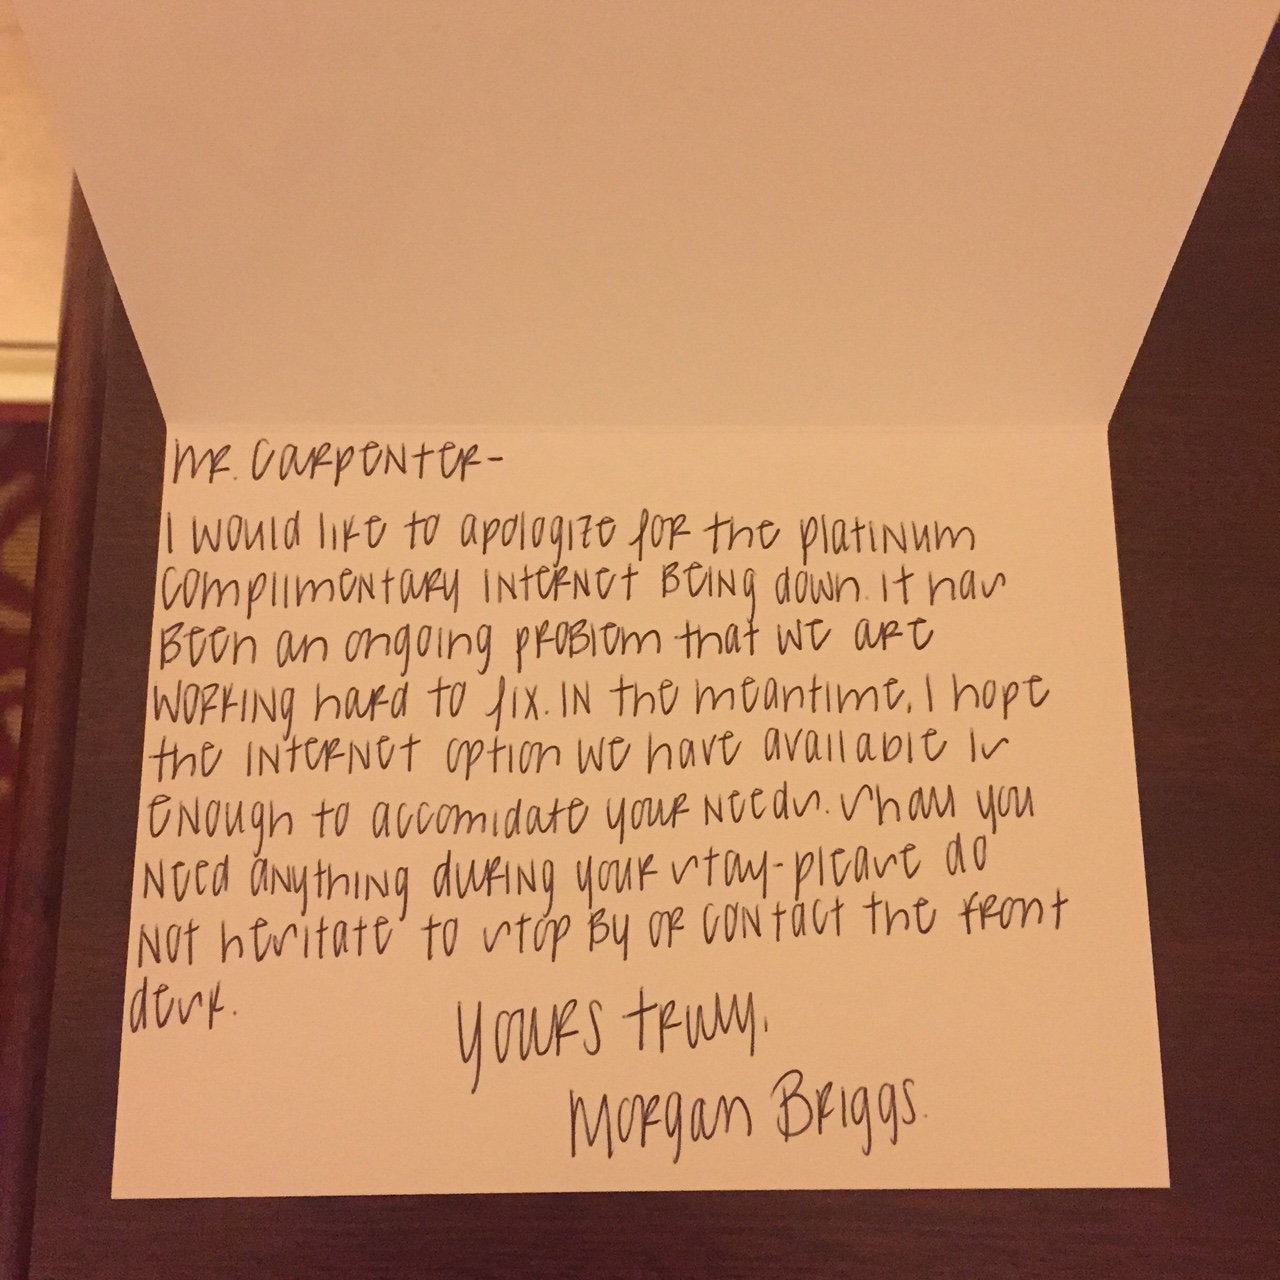 Mr. Carpenter-
I would like to apologize for the platinum
complimentary internet being down. It has
been an ongoing problem that we are
working hard to fix. In the meantime, I hope
the internet option we have available is
enough to accomidate your needs. Shall you
need anything during your stay-please do
not hesitate to stop by or contact the front
desk.
Yours truly,
Morgan Briggs.